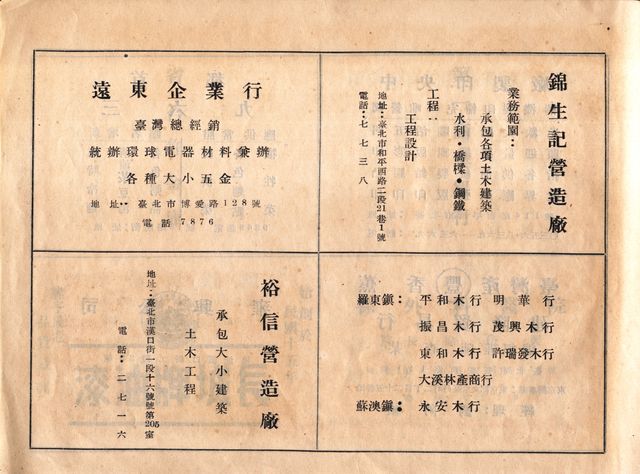 錦生記營造廠
業務範圍：
承包各項土木建築
水利・橋樑・鋼鐵
工程：
工程設計
地址：臺北市和平西路二段21巷1號
電話：七七三八
遠東企業行
臺灣總經銷
統辦環球電器材料兼辦
各種大小五金
地址：臺北市博愛路128號
電話7876
羅東鎮： 平和木行 明華行
振昌木行 茂興木行
東和木行 許瑞發木行
大溪林產商行
蘇澳鎮： 永安木行
裕信營造廠
承包大小建築
土木工程
地址：臺北市漢口街一段十六號號第205室
電話：二七一六